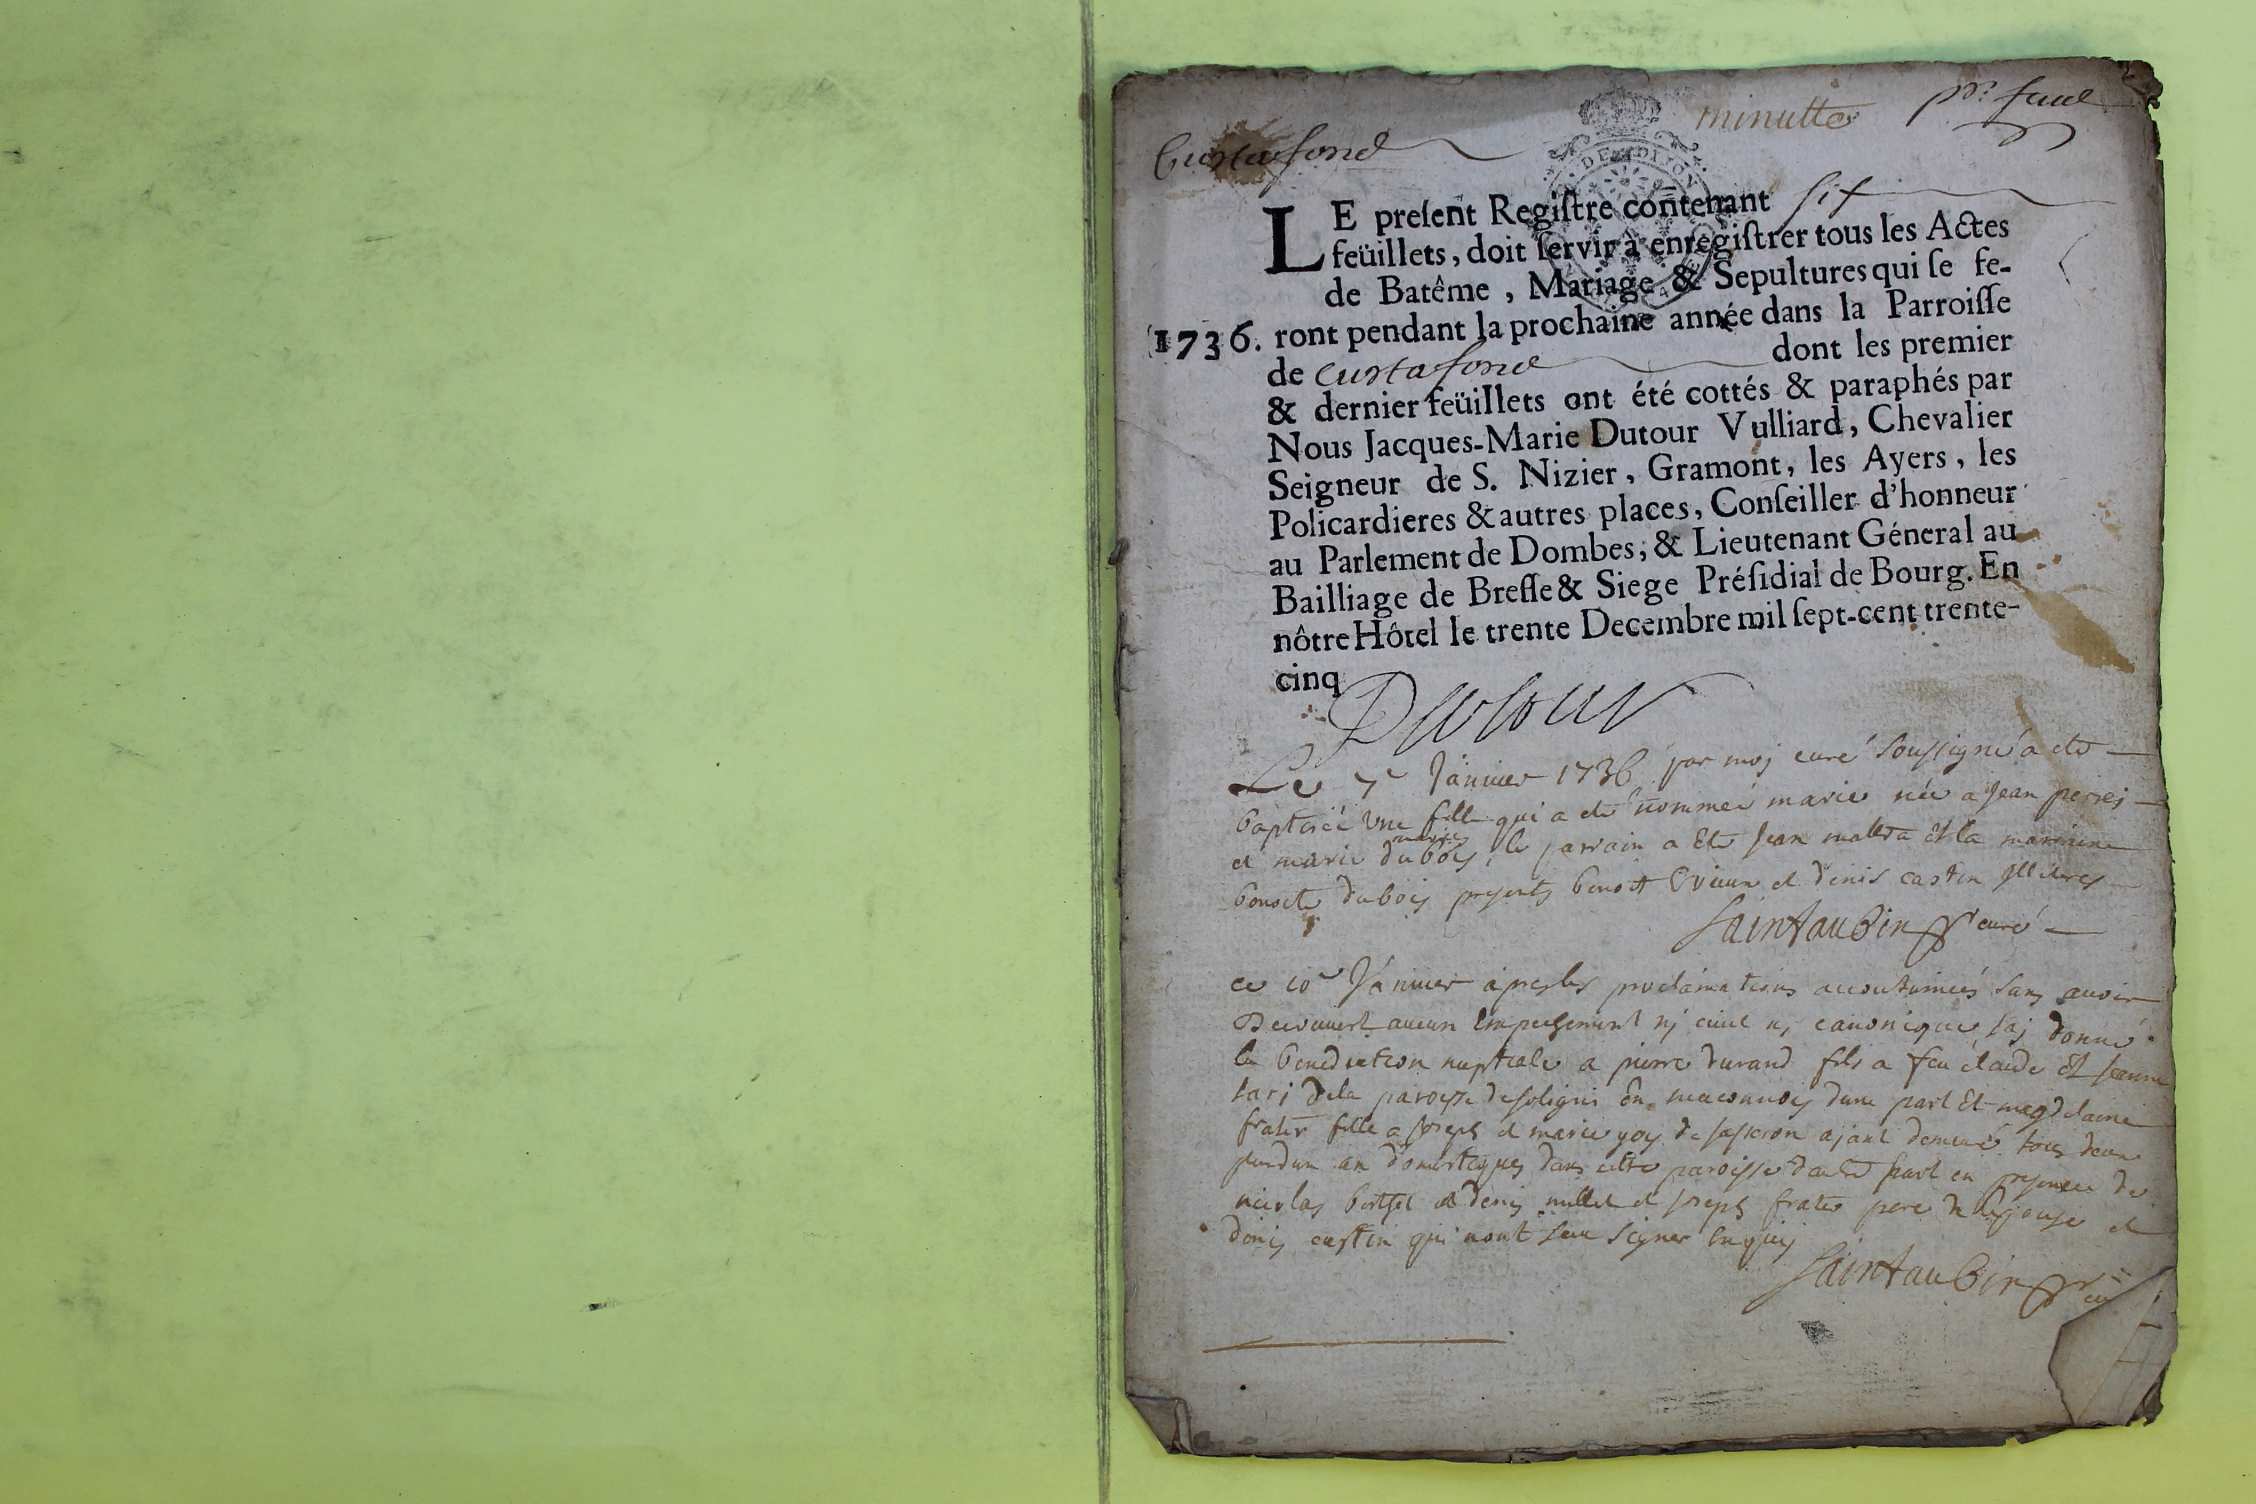 minutte
Curtafond
DE DIJON
LE preſent Regiſtre contenant six
feüillets, doit ſervir à enregiſtrer tous les Actes
de Batême, Mariage & Sepultures qui ſe fe-
1736. ront pendant la prochaine année dans la Parroiſſe
de Curtafond dont les premier
& dernier feüillets ont été cottés & paraphés par
Nous Jacques-Marie Dutour Vulliard, Chevalier
Seigneur de S. Nizier, Gramont, les Ayers, les
Policardieres & autres places, Conſeiller d'honneur
au Parlement de Dombes, & Lieutenant Géneral au
Bailliage de Breſſe & Siege Préſidial de Bourg. En
nôtre Hôtel le trente Decembre mil ſept-cent trente-
cinq
Dutour
Le 7e Januier 1736 par moj curé soussigné a ete
baptiseé une fille qui a ete nommeé marie née a Jean
mariés
et marie dubois, le parrain a Ete Jean et la marraine
benoite dubois presents benoit et denis castin
Saintaubin curé
ce 10e Januier apres les proclamations accoutumeés sans auoir
decouuert aucun Empechement nj ciuil nj canonique J'aj donné
la benediction nuptiale a pierre durand fils a feu claude Et Jeanne
de la paroisse de soligni En maconnois dune part Et magdelaine
frater fille a Joseph et marie de ajant demeuré tous deux
pendant un an domestiques dans cette paroisse dautre part en presence de
nicolas et denis millet et Joseph frater pere de l'epouse et
denis castin qui n'ont sceu signer Enquis
Saintaubin